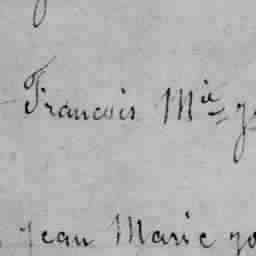 François Mie
Jean Marie